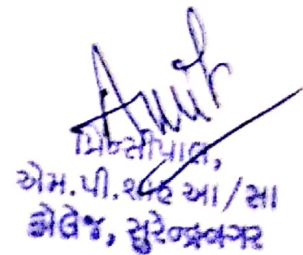 Amit
પ્રિન્સીપાલ,
એમ.પી.શાહ આ/સા
કોલેજ, સુરેન્દ્રનગર